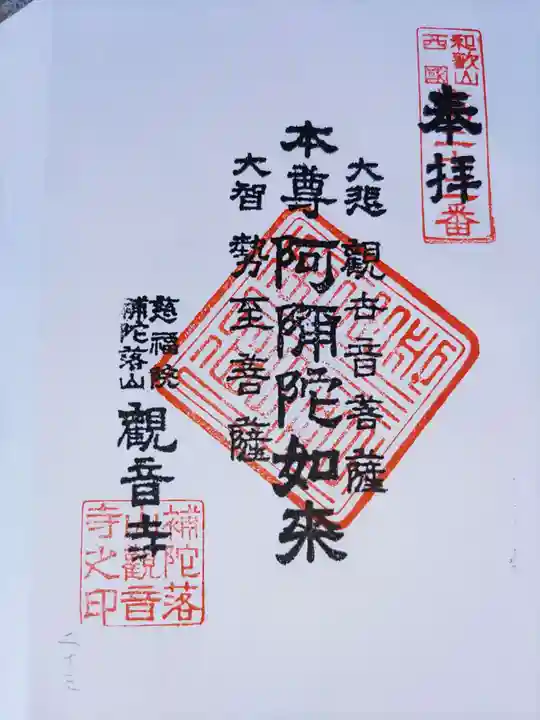 和歌山
西國
番
奉拝
大悲 觀世音菩薩
本尊 阿彌陀如來
大智 勢至菩薩
慈福院
補陀落山
觀音寺
補陀落
山觀音
寺之印
二十三